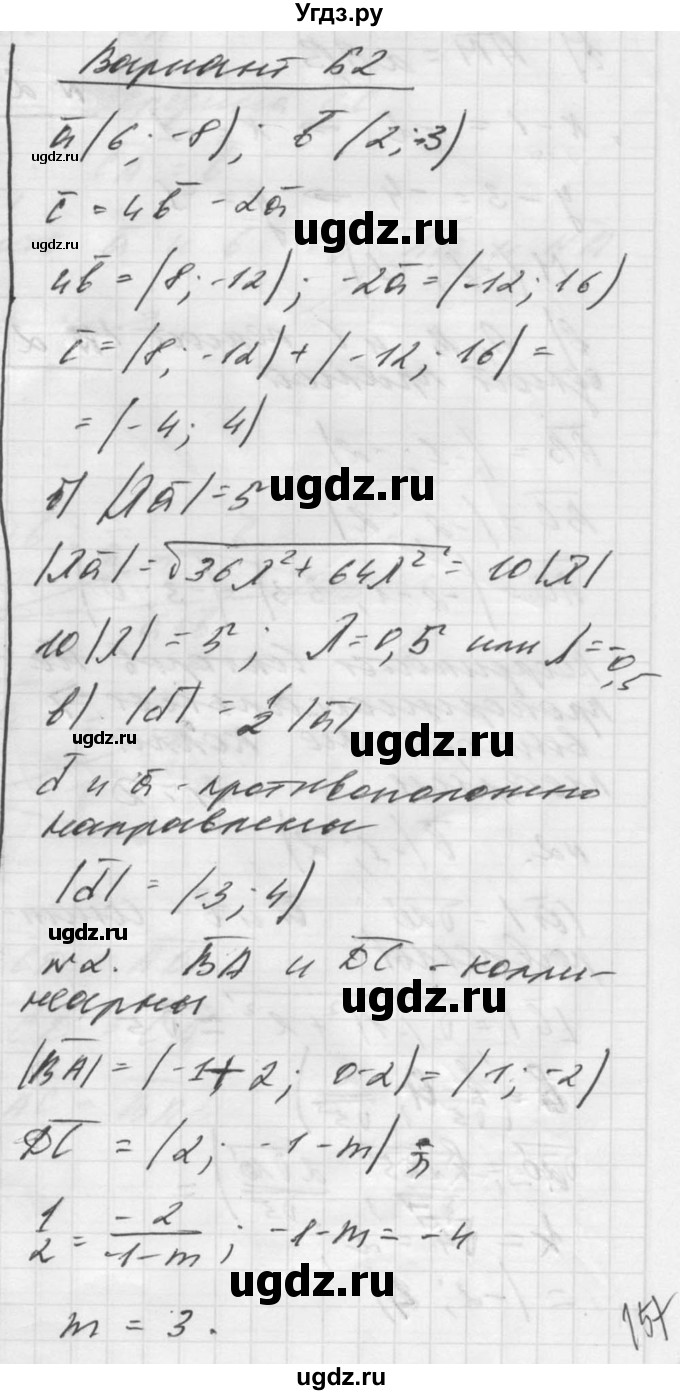 Угдз.ру
Вариант Б2
ā(6; -8); b̄(2; -3)
ugdz.ru
c̄ = 4b̄ - 2ā
ugdz.ru
ugdz.ru
4b̄ = (8; -12); -2ā = (-12; 16)
c̄ = (8; -12) + (-12; 16) =
= (-4; 4)
б) |λā| = 5
ugdz.ru
|λā| = √36λ² + 64λ² = 10|λ|
10|λ| = 5; λ = 0,5 или λ = -0,5
в) |d̄| = 1/2 |ā|
ugdz.ru
ugdz.ru
d̄ и ā - противоположно
направлены
|d̄| = (-3; 4)
ugdz.ru
№2. BA и DC - колли-
неарны
ugdz.ru
|BA| = (-1+2; 0-2) = (1; -2)
DC = (2; -1-m)
1/2 = -2/-1-m; -1-m = -4
ugdz.ru
m = 3.
157
ugdz.ru